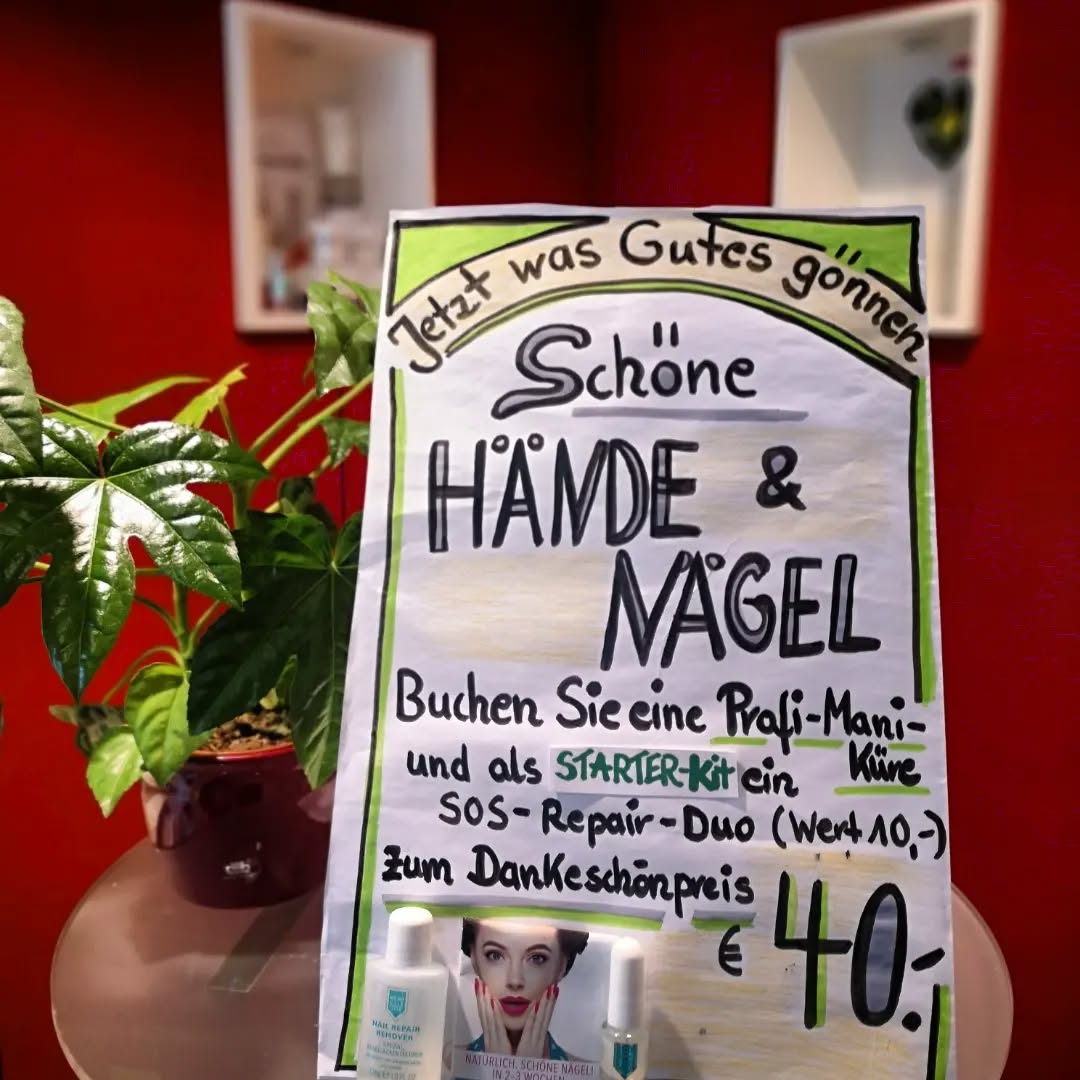 Jetzt was Gutes gönnen
Schöne
HÄNDE &
NÄGEL
Buchen Sie eine Profi-Mani-
Küre
und als STARTER-Kit ein
SOS-Repair-Duo (Wert 10,-)
zum Dankeschönpreis
€ 40.-
NAIL REPAIR
REMOVER
NATÜRLICH, SCHÖNE NÄGEL!
IN 2-3 WOCHEN